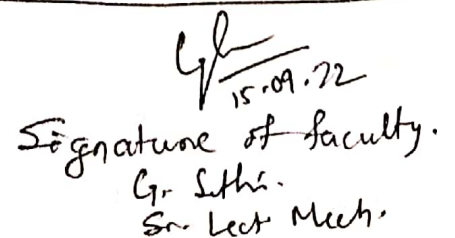 15.09.22
Signature of faculty.
G. Sethi.
Sr. Lect Mech.